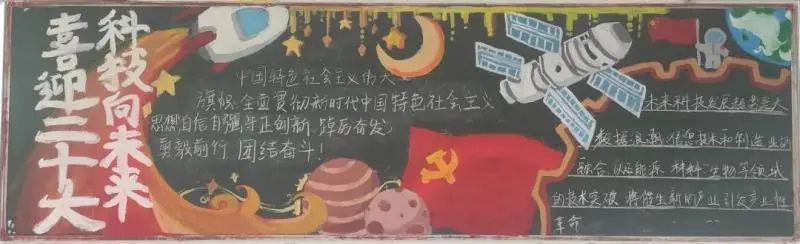 科技向未来
喜迎二十大
中国特色社会主义伟大
旗帜、全面贯彻新时代中国特色社会主义
思想自信自强守正创新、踔厉奋发
勇毅前行、团结奋斗！
未来科技发展趋势是大
数据浪潮、信息技术和制造业的
融合、以及能源、材料、生物等领域
的技术突破、将催生新的产业引发产业性
革命